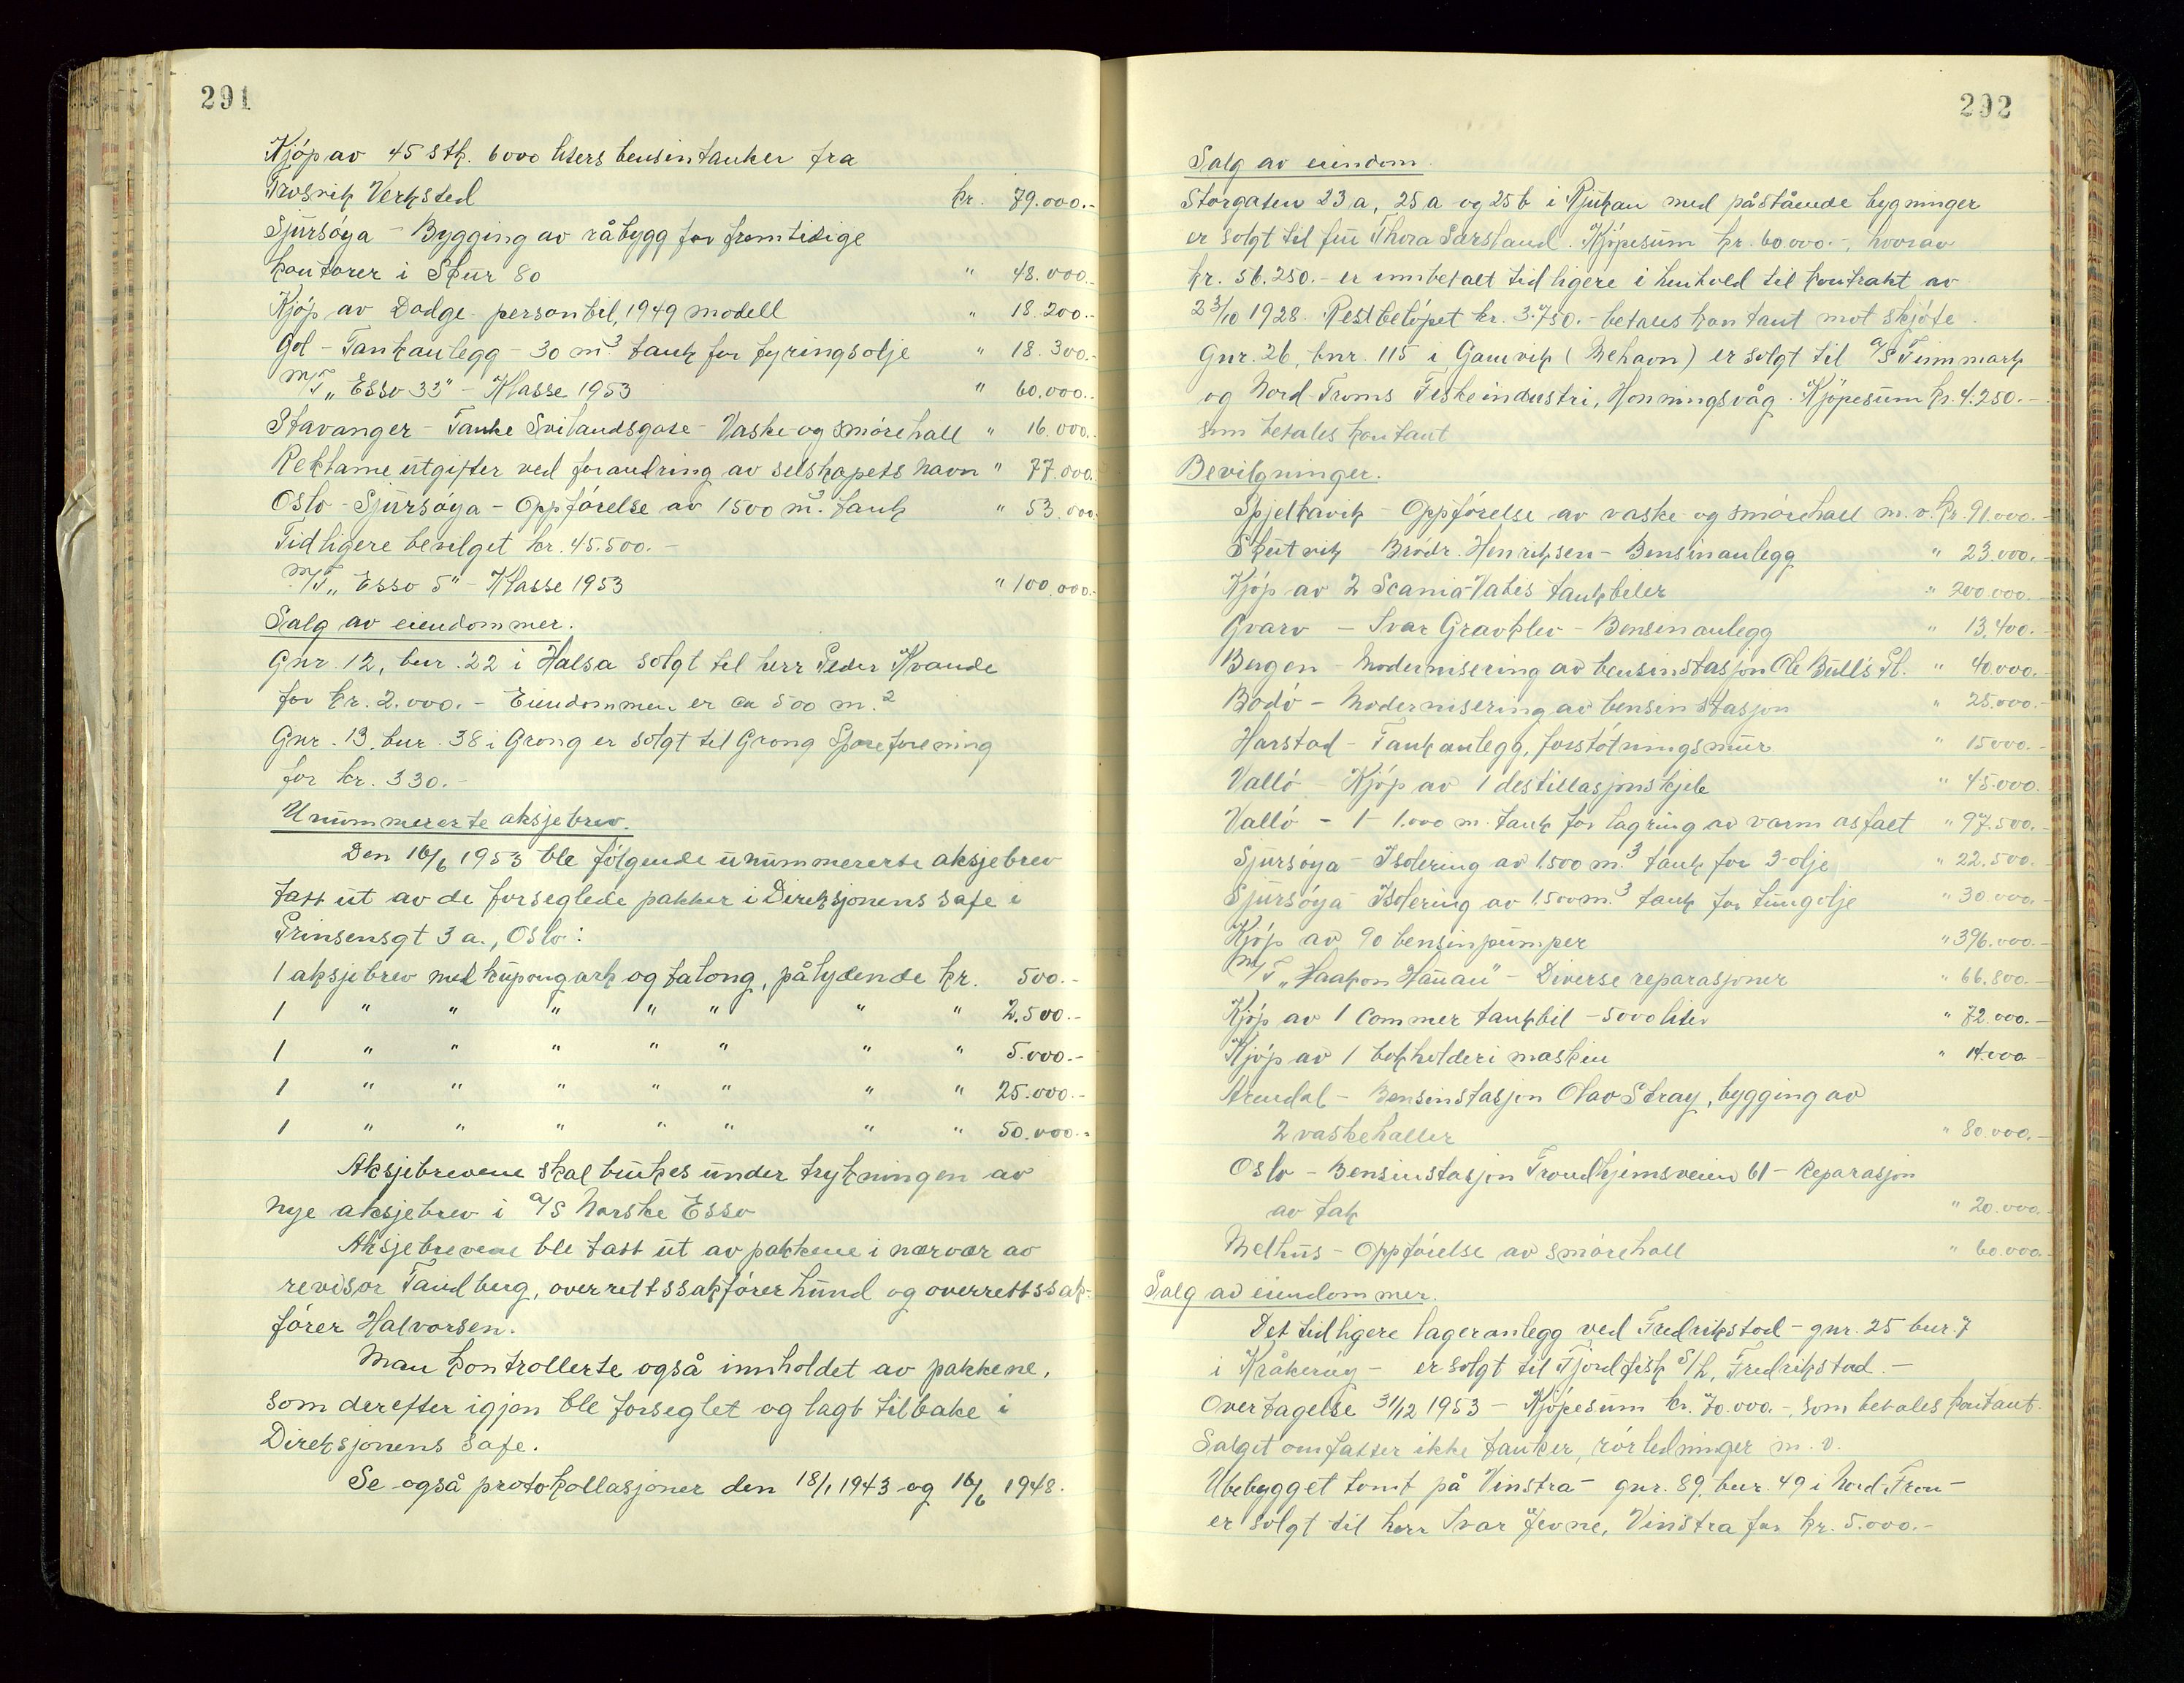 291
Kjøp av 45 stk. 6000 liters bensintanker fra
Trosvik Verksted kr. 79.000.-
Sjursøya - Bygging av råbygg for fremtidige
kontorer i Skur 80 " 48.000.-
Kjøp av Dodge personbil, 1949 modell " 18.200.-
Gol - Tankanlegg - 30 m³ tank for fyringsolje " 18.300.-
M/T „Esso 33" - Klasse 1953 " 60.000.-
Stavanger - Tanke Svilandsgate - Vaske- og smørehall " 16.000.-
Reklameutgifter ved forandring av selskapets navn " 77.000.-
Oslo - Sjursøya - Oppførelse av 1500 m³ tank " 53.000.
Tidligere bevilget kr. 45.500.-
M/T „Esso 5" - Klasse 1953 " 100.000.-
Salg av eiendommer.
Gnr. 12, bnr. 22 i Halsa solgt til herr Peder Kvande
for kr. 2.000.- Eiendommen er ca 500 m.²
Gnr. 13, bnr. 38 i Grong er solgt til Grong Sporeforening
for kr. 330.-
Unummererte aksjebrev.
Den 16/6 1953 ble følgende unummererte aksjebrev
tatt ut av de forseglede pakker i Direksjonens safe i
Prinsensgt 3 a., Oslo:
1 aksjebrev med kupongark og talong, pålydende kr. 500.-
1 " " " " " " " 2.500.-
1 " " " " " " " 5.000.-
1 " " " " " " " 25.000.-
1 " " " " " " " 50.000.-
Aksjebrevene skal brukes under trykningen av
nye aksjebrev i A/S Norske Esso
Aksjebrevene ble tatt ut av pakkene i nærvær av
revisor Tandberg, overrettssakfører Lund og overrettssak-
fører Halvorsen.
Man kontrollerte også innholdet av pakkene,
som derefter igjen ble forseglet og lagt tilbake i
Direksjonens safe.
Se også protokollasjoner den 18/1 1943 og 16/6 1948.
292
Salg av eiendom.
Storgaten 23 a, 25 a og 25 b i Rjukan med påstående bygninger
er solgt til fru Thora Sørsland. Kjøpesum kr. 60.000.-, hvorav
kr. 56.250.- er innbetalt tidligere i henhold til kontrakt av
23/10 1928. Restbeløpet kr. 3.750.- betales kontant mot skjøte.
Gnr. 26, bnr. 115 i Gamvik (Mehavn) er solgt til A/S Finnmark
og Nord-Troms Fiskeindustri, Honningsvåg. Kjøpesum kr. 4.250.-
som betales kontant
Bevilgninger.
Spjelkavik - Oppførelse av vaske og smørehall m.v. kr. 91.000.-
Skutvik - Brødr. Henriksen - Bensinanlegg " 23.000.-
Kjøp av 2 Scania-Vabis tankbiler " 200.000.-
Gvarv - Ivar Gravklev - Bensinanlegg " 13.400.-
Bergen - Modernisering av bensinstasjon Ole Bull's Pl. " 40.000.-
Bodø - Modernisering av bensinstasjon " 25.000.-
Harstad - Tankanlegg, forstøtningsmur " 15000.-
Vallø - Kjøp av 1 destillasjonskjele " 45.000.
Vallø - 1 - 1.000 m. tank for lagring av varm asfalt " 97.500.-
Sjursøya - Isolering av 1.500 m.³ tank for 3-olje " 22.500.-
Sjursøya - Isolering av 1.500 m.³ tank for tungolje " 30.000.-
Kjøp av 90 bensinpumper " 396.000.-
M/T „Haakon Hauan" - Diverse reparasjoner " 66.800.-
Kjøp av 1 Commer tankbil - 5000 liter " 72.000.-
Kjøp av 1 bokholderi maskin " 14.000 -
Arendal - Bensinstasjon Olav Stray, bygging av
2 vaskehaller " 80.000.-
Oslo - Bensinstasjon Trondhjemsveien 61 - Reparasjon
av tak " 20.000.-
Melhus - Oppførelse av smørehall " 60.000.-
Salg av eiendommer.
Det tidligere lageranlegg ved Fredrikstad - gnr. 25 bnr. 7
i Kråkerøy - er solgt til Fjordfisk S/L, Fredrikstad.-
Overtagelse 31/12 1953 - Kjøpesum kr. 70.000.-, som betales kontant.
Salget omfatter ikke tanker, rørledninger m.v.
Ubebygget tomt på Vinstra - gnr. 89, bnr. 49 i Nord Fron -
er solgt til herr Ivar Jevne, Vinstra for kr. 5.000.-